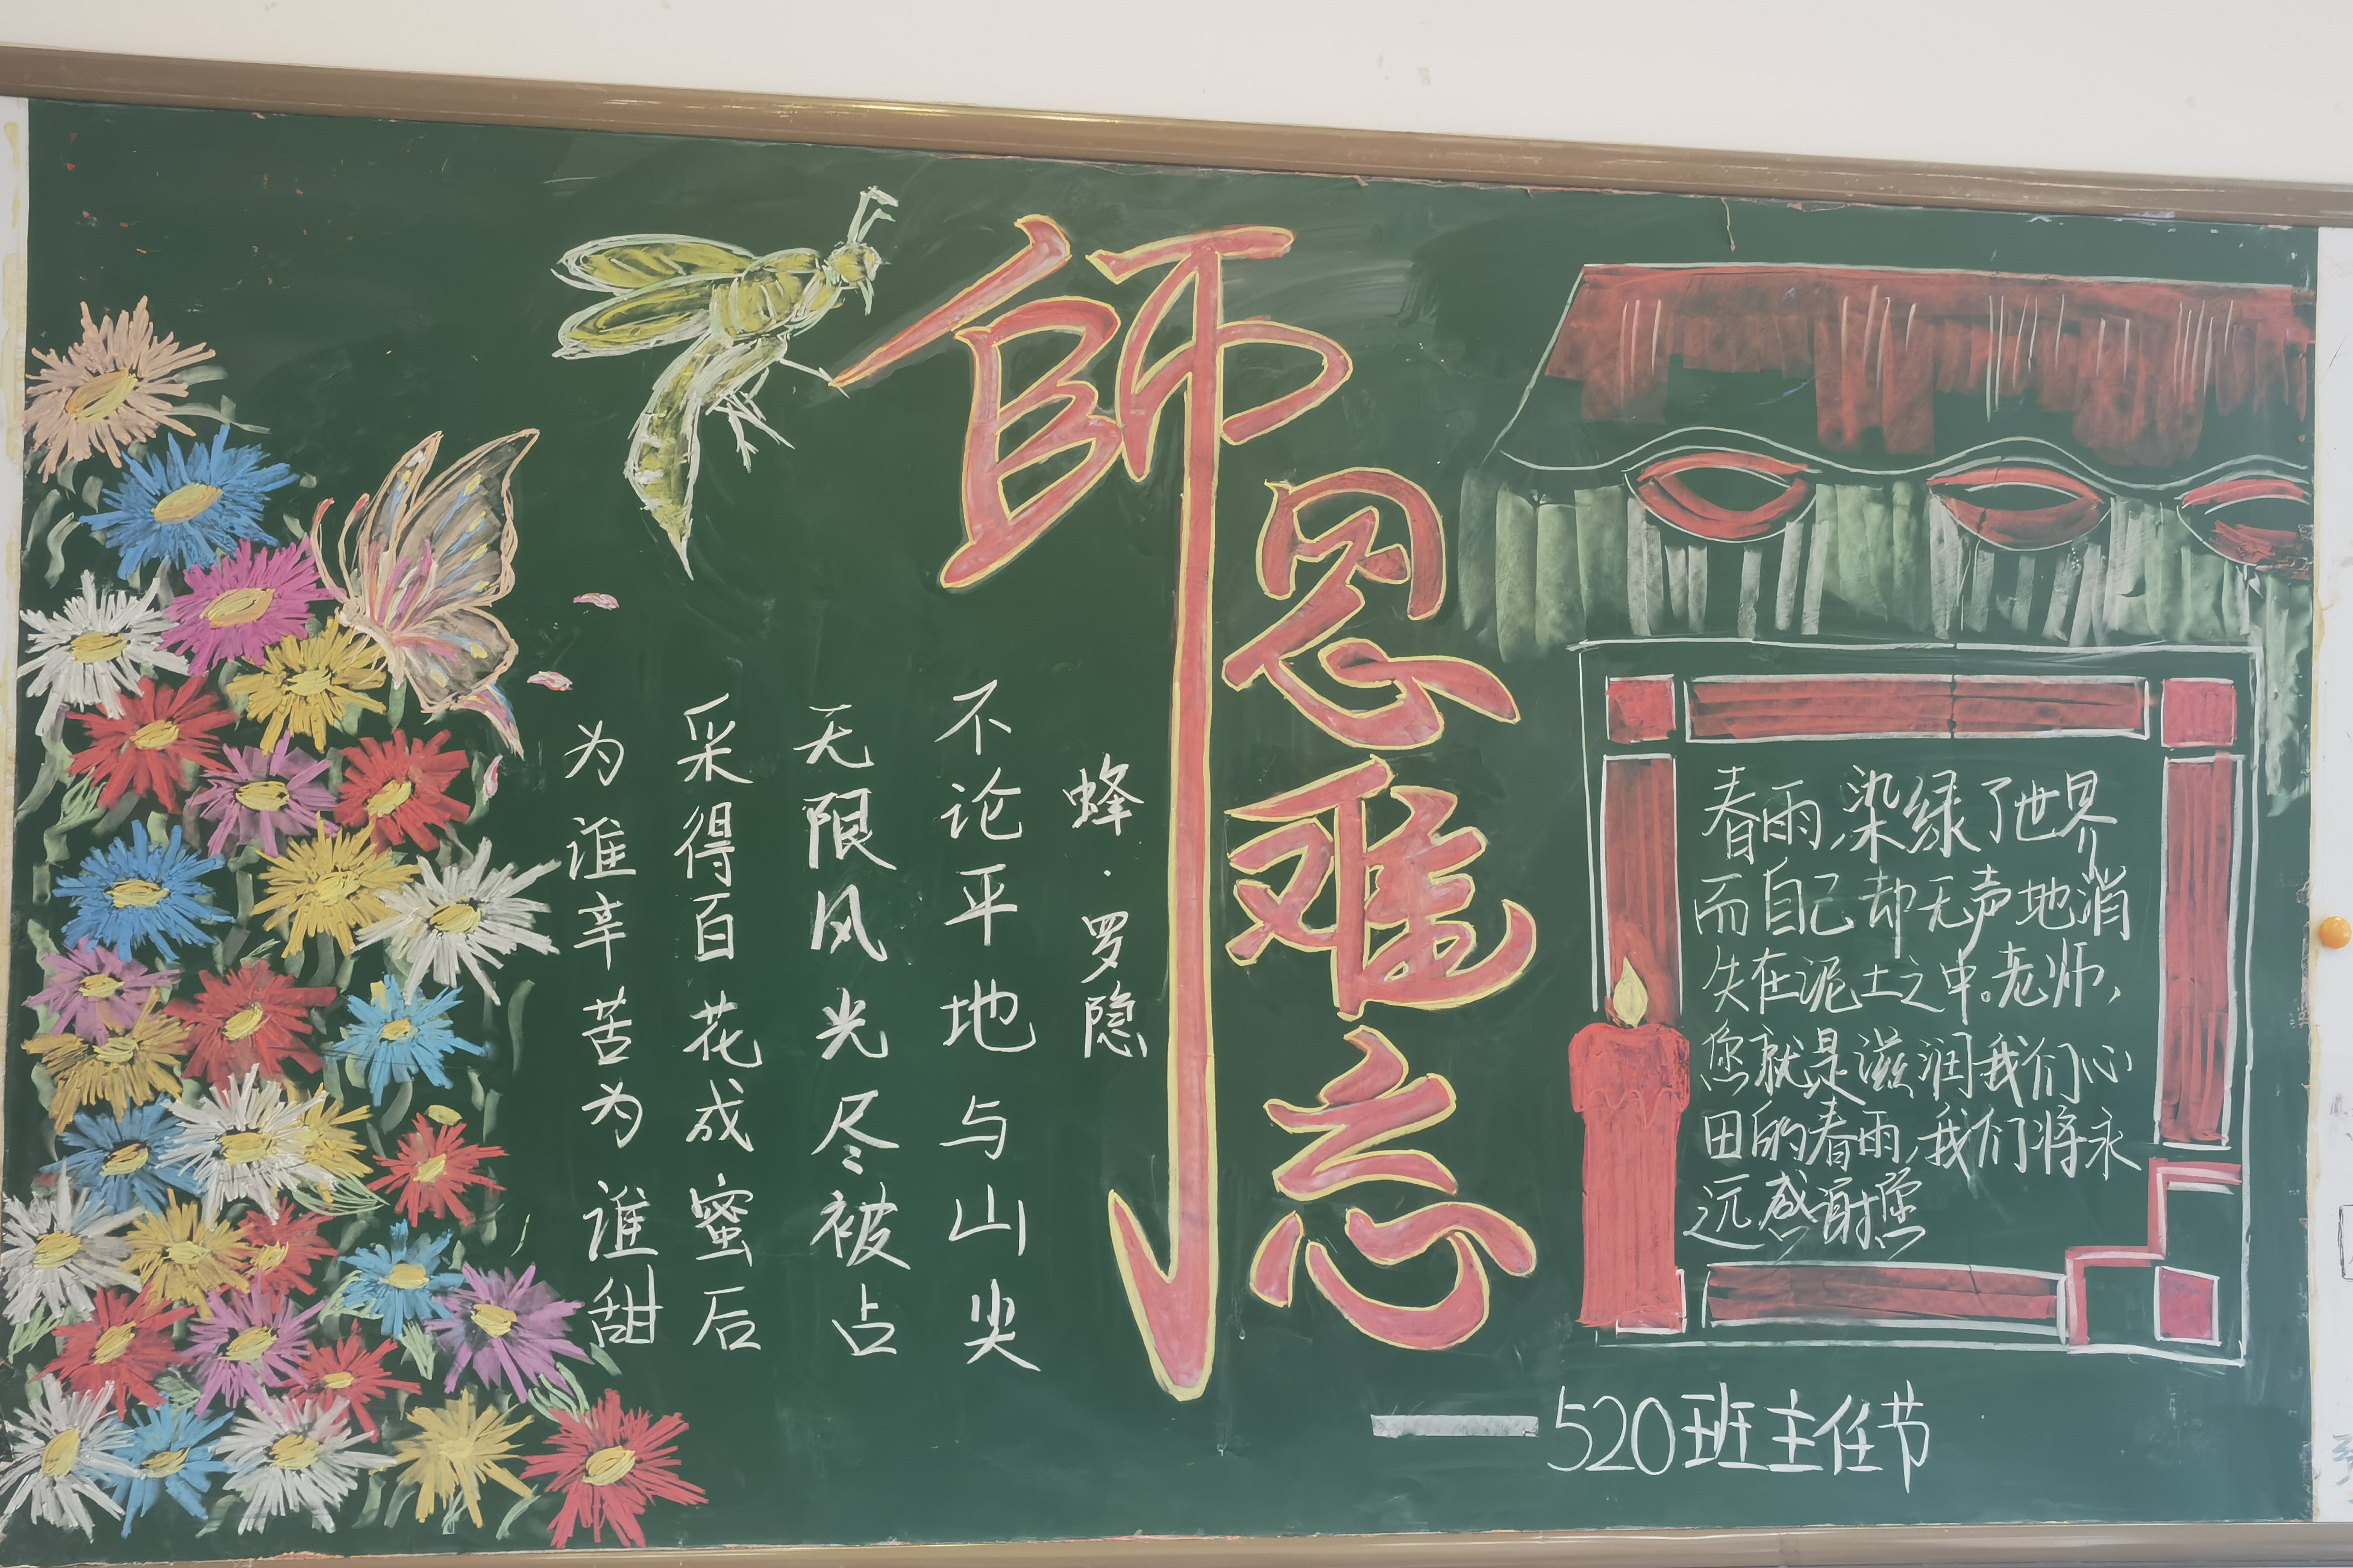 師恩难忘
蜂·罗隐
不论平地与山尖
无限风光尽被占
采得百花成蜜后
为谁辛苦为谁甜
春雨,染绿了世界
而自己却无声地消
失在泥土之中。老师,
您就是滋润我们心
田的春雨,我们将永
远感谢您
——520班主任节